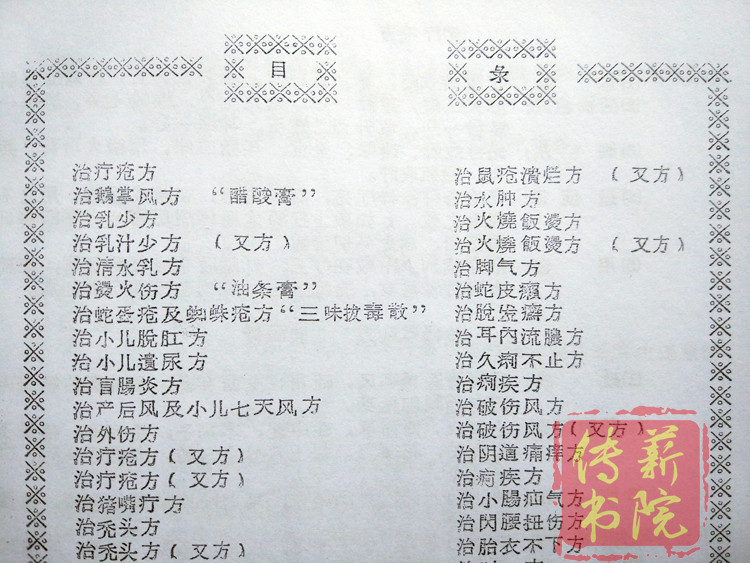 目 录
治疔疮方
治鹅掌风方 “醋酸膏”
治乳少方
治乳汁少方 （又方）
治清水乳方
治燙火伤方 “油条膏”
治蛇蛋疮及蜘蛛疮方“三味拔毒散”
治小儿脫肛方
治小儿遺尿方
治盲腸炎方
治产后风及小儿七天风方
治外伤方
治疔疮方（又方）
治疔疮方（又方）
治猪嘴疔方
治禿头方
治禿头方（又方）
治鼠疮潰烂方 （又方）
治水肿方
治火燒飯燙方
治火燒飯燙方 （又方）
治脚气方
治蛇皮癬方
治脫发癬方
治耳內流膿方
治久痢不止方
治痢疾方
治破伤风方
治破伤风方（又方）
治阴道痛痒方
治疾方
治小腸疝气方
治閃腰扭伤方
治胎衣不下方
传薪书院